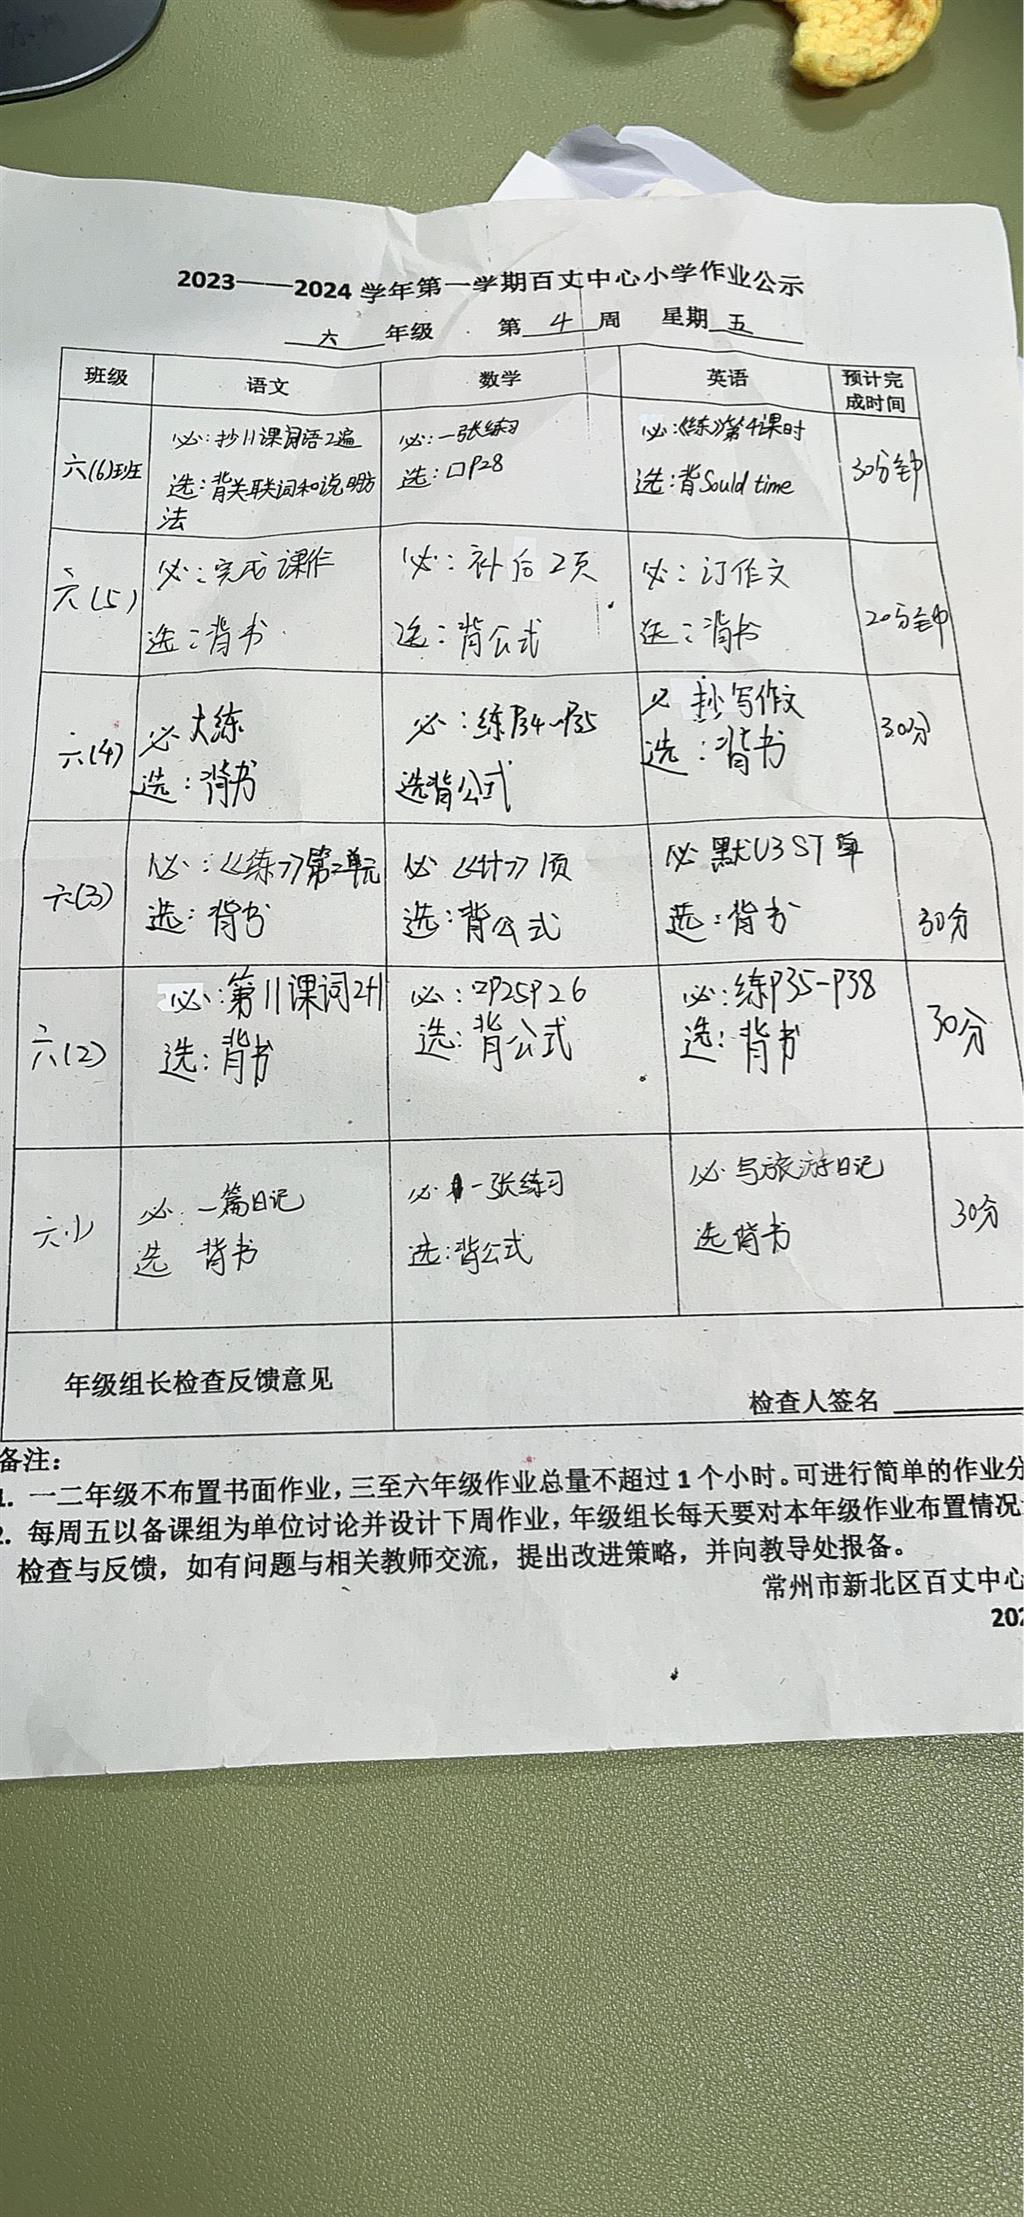 2023——2024 学年第一学期百丈中心小学作业公示
六 年级 第 4 周 星期 五
班级 语文 数学 英语 预计完成时间
六(6)班 必:抄11课词语2遍 必:一张练习 必:《练》第4课时 30分钟
选:背关联词和说明方法 选:口P28 选:背Sould time
六(5) 必:完成课作 必:补后2页 必:订作文 20分钟
选:背书 选:背公式 选:背书
六(4) 必大练 必:练P34~P35 必 抄写作文 30分
选:背书 选背公式 选:背书
六(3) 必:《练》第2单元 必《计》1页 必 默U3 ST 单 30分
选:背书 选:背公式 选:背书
六(2) 必:第11课词2+1 必:口P25P26 必:练P35-P38 30分
选:背书 选:背公式 选:背书
六小 必:一篇日记 必 一张练习 必 写旅游日记 30分
选 背书 选:背公式 选背书
年级组长检查反馈意见
检查人签名
备注:
1. 一二年级不布置书面作业,三至六年级作业总量不超过 1 个小时。可进行简单的作业分
2. 每周五以备课组为单位讨论并设计下周作业,年级组长每天要对本年级作业布置情况
检查与反馈,如有问题与相关教师交流,提出改进策略,并向教导处报备。
常州市新北区百丈中心
202